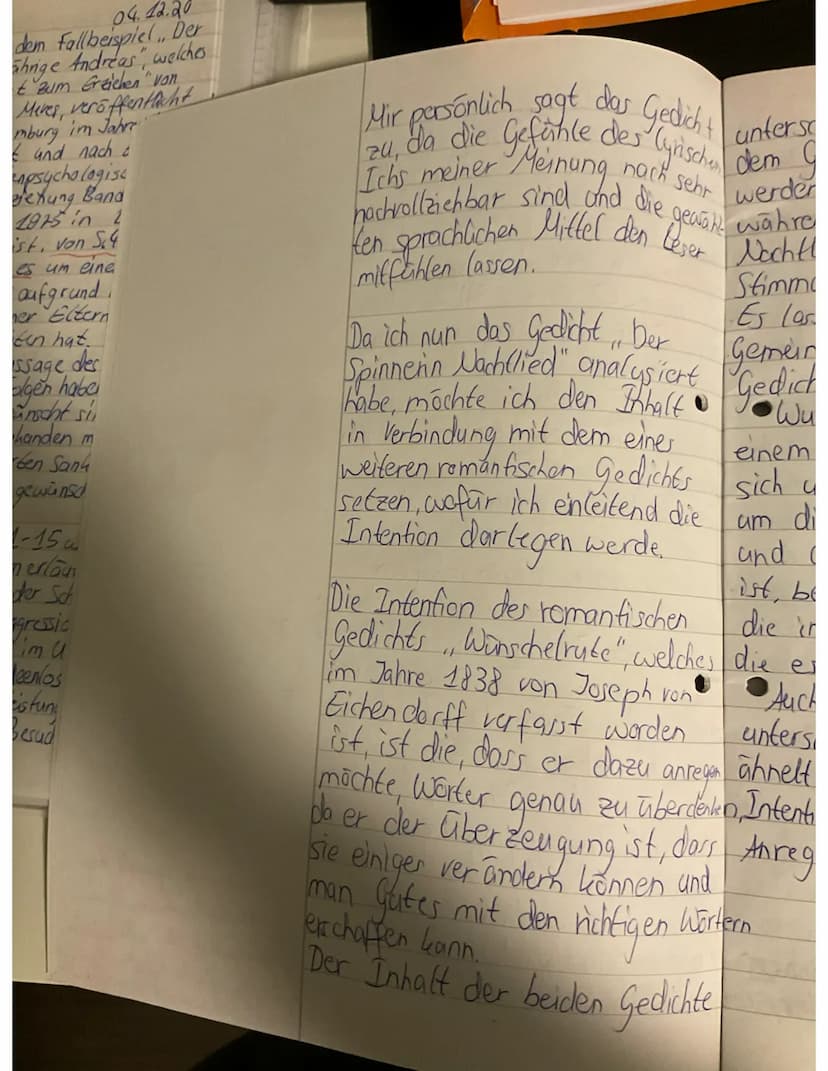 04.12.20
dem Fallbeispiel „Der
ährige Andreas", welches
t "zum Erziehen" von
Meves, veröffentlicht
mburg im Jahre
und nach
npsychologisc
ziehung Band
1975 in
ist, von S.4
es um eine
aufgrund
ner Eltern
ten hat.
ssage des
olgen habe
ünscht si
handen m
ten Sank
gewünsc
1-15
n erläu
der Sc
gressio
im U
eenlos
istung
Besuc
Mir persönlich sagt das Gedicht
zu, da die Gefühle des lyrischen
Ichs meiner Meinung nach sehr
nachvollziehbar sind und die gewähl-
ten sprachlichen Mittel den Leser
mitfühlen lassen.
Da ich nun das Gedicht „Der
Spinnerin Nachtlied" analysiert
habe, möchte ich den Inhalt
in Verbindung mit dem eines
weiteren romantischen Gedichts
setzen, wofür ich einleitend die
Intention darlegen werde.
Die Intention des romantischen
Gedichts „Wünschelrute", welches
im Jahre 1838 von Joseph von
Eichendorff verfasst worden
ist, ist die, dass er dazu anregen
möchte, Wörter genau zu überdenken,
da er der Überzeugung ist, dass
sie einiges verändern können und
man Gutes mit den richtigen Wörtern
erschaffen kann.
Der Inhalt der beiden Gedichte
untersc
dem G
werden
währe
Nachtl
Stimm
Es las
Gemein
Gedich
Wu
einem
sich u
um di
und
ist, be
die in
die es
Auch
unters
ähnelt
Intent
Anreg